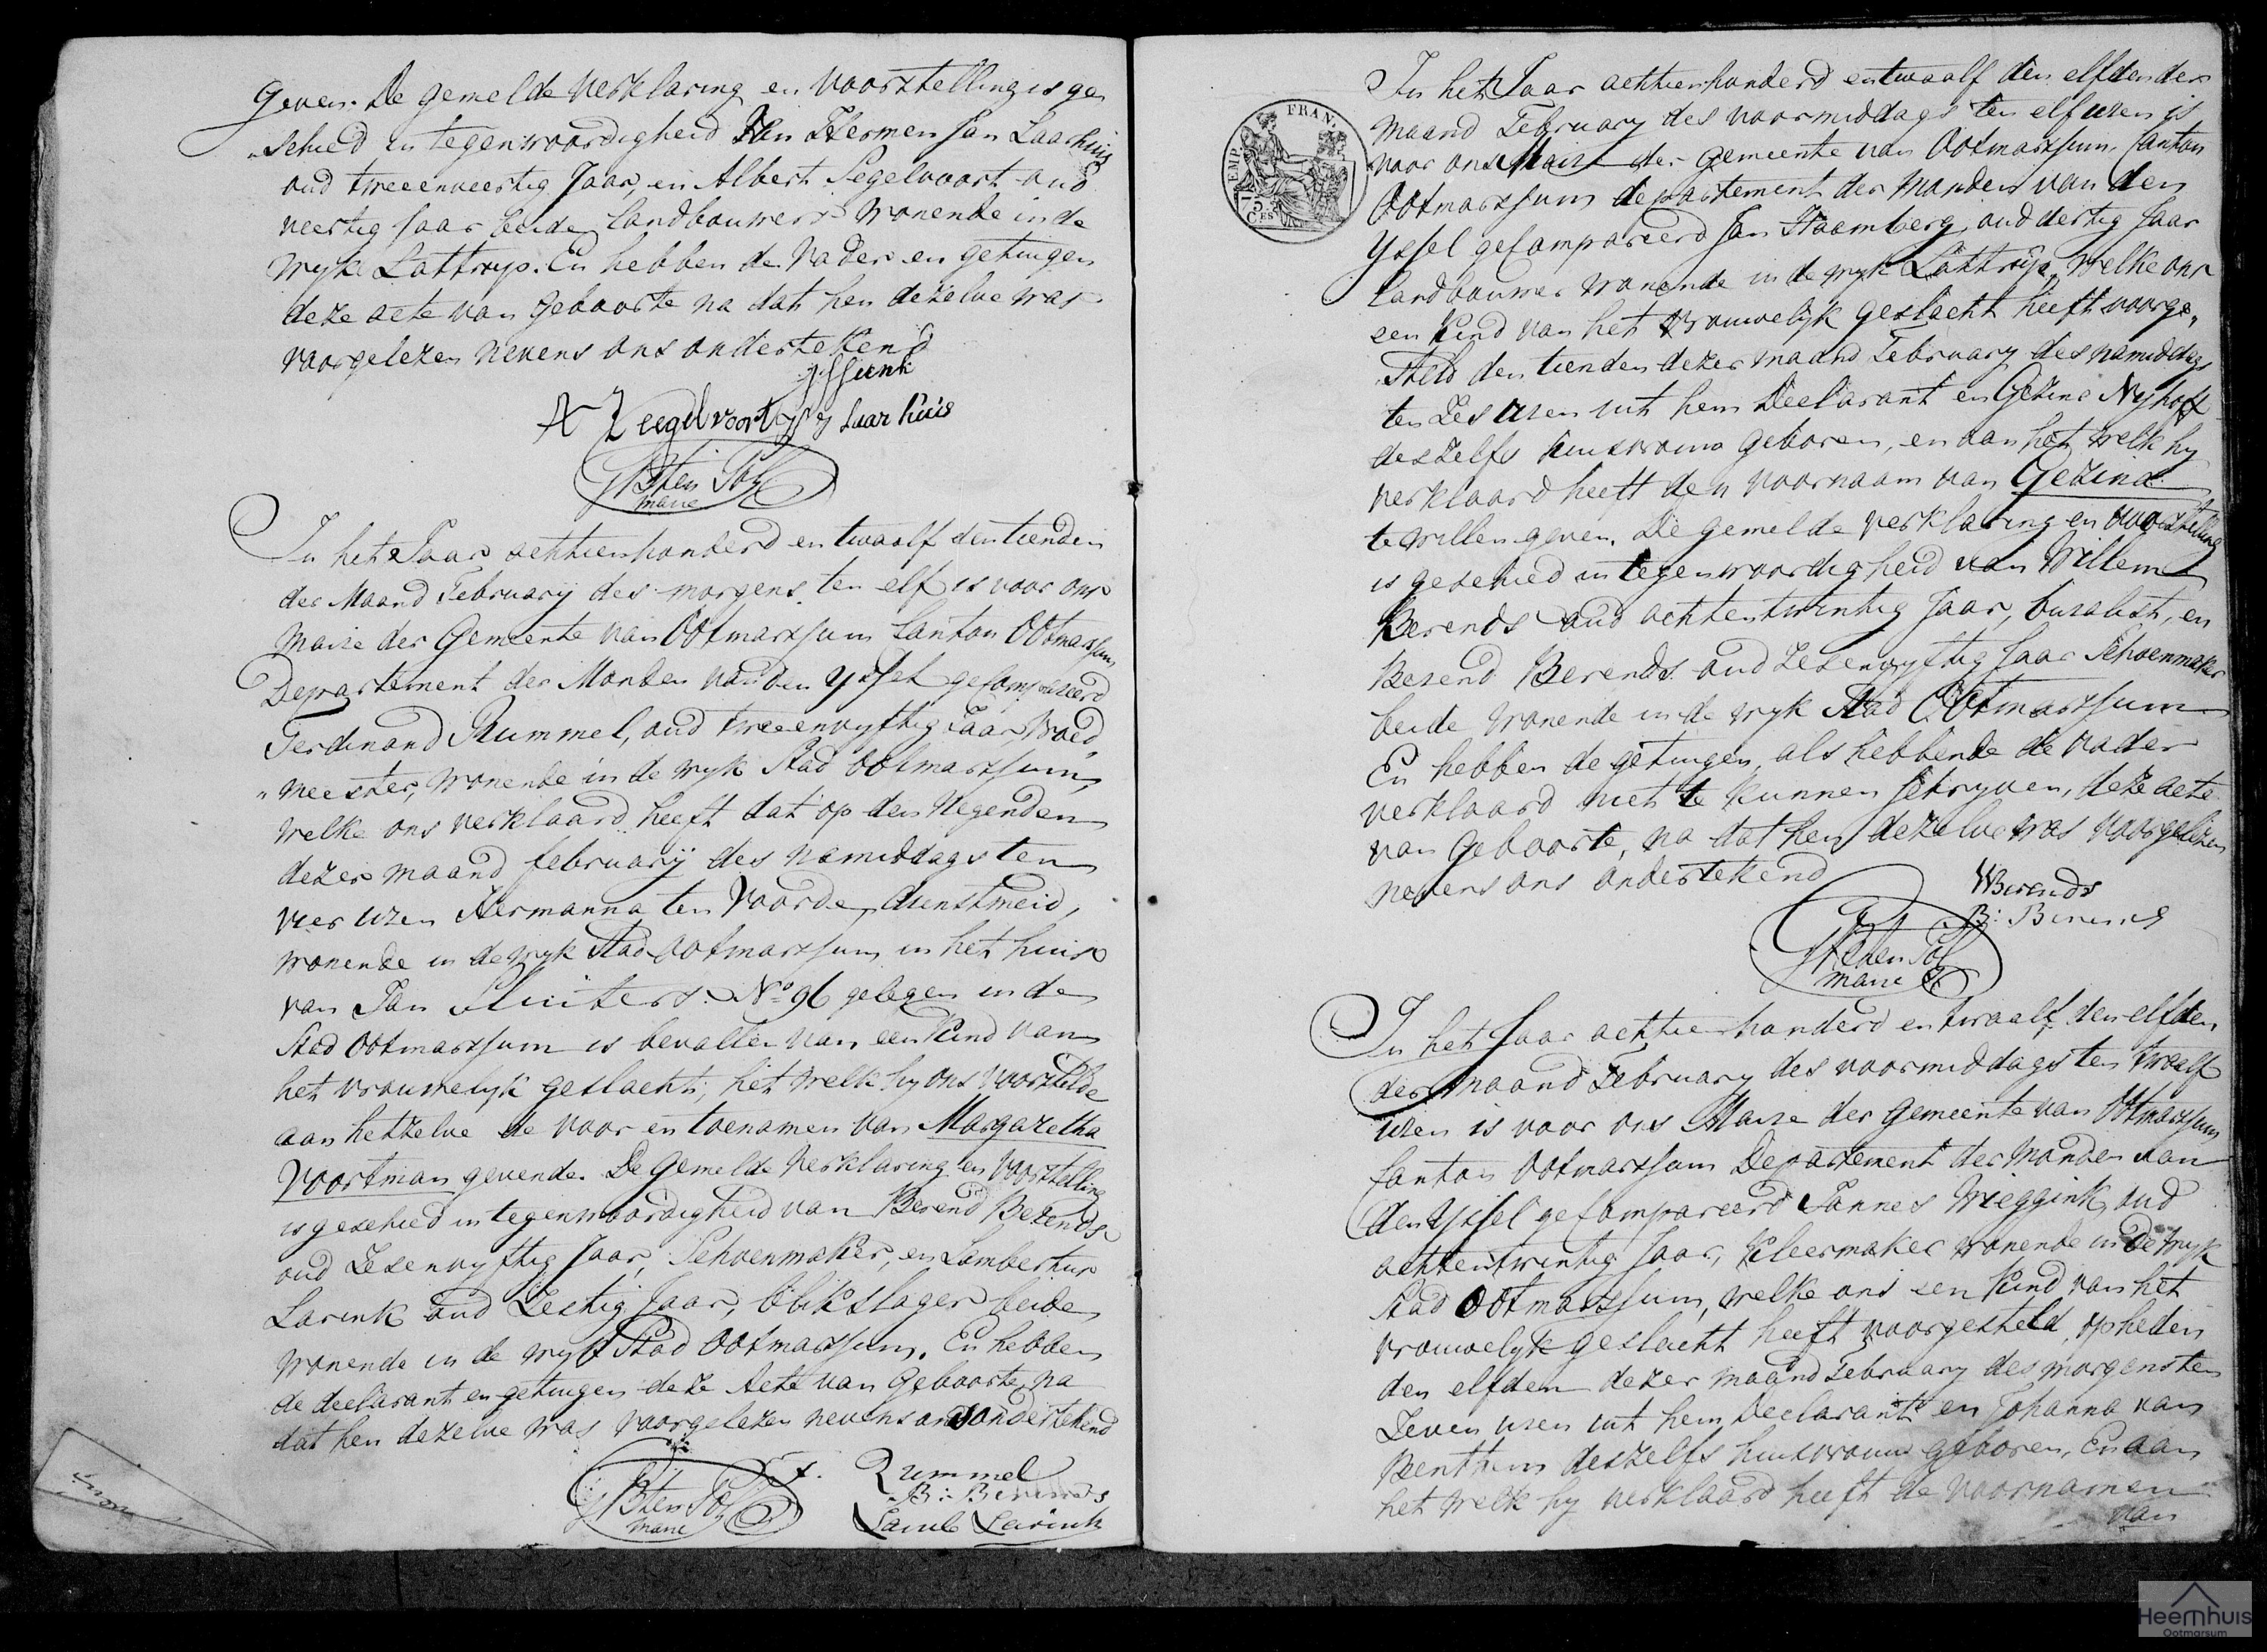 Geven. De gemelde verklaring en voorstelling is ge
„schied in tegenwoordigheid van Hermen Jan Laarhuis
oud tweeenveertig Jaar, en Albert Segelvoort oud
veertig Jaar beide landbouwers wonende in de
wyk Lattrop. En hebben de Vader en getuigen
deze acte van geboorte na dat hen dezelve was
voorgelezen nevens ons ondertekend
A Zeegelvoort
Laar huis
G B ten Pol
maire
In het Jaar achtienhonderd en twaalf den tienden
der Maand February des morgens ten elf is voor ons
Maire der Gemeente van Ootmarssum Canton Ootmarssum
Departement der Monden van den Yssel gecompareerd
Ferdinand Rummel, oud tweeenvyftig Jaar, Vroed
„meester, wonende in de wyk Stad Ootmarssum,
welke ons verklaard heeft dat op den Negenden
dezer maand february des namiddags ten
vier uren Hermanna ten Voorde, dienstmeid,
wonende in de wyk Stad Ootmarssum, in het huis
van Jan Sluiters No 96 gelegen in de
Stad Ootmarssum is bevallen van een Kind van
het vrouwelyk geslacht, het welk hy ons voorstelde
aan hetzelve de voor en toenamen van Margaretha
Voortman gevende. De gemelde verklaring en voorstelling
is geschied in tegenwoordigheid van Berend Berends
oud Zesenvyftig Jaar, Schoenmaker, en Lambertus
Larink oud Zestig Jaar, blikslager beide
wonende in de wyk Stad Ootmarssum. En hebben
de declarant en getuigen deze Acte van Geboorte, na
dat hen dezelve was voorgelezen nevens ons ondertekend
F. Rummel
B: Berends
Lamb Larink
G B ten Pol
maire
EMP. FRAN.
75
CES
In het Jaar achtienhonderd en twaalf den elfden der
maand February des voormiddags ten elf uren is
voor ons Maire der gemeente van Ootmarssum, Canton
Ootmarssum departement der Monden van den
Yssel gecompareerd Jan Haamberg, oud dertig Jaar
landbouwer wonende in de wyk Lattrop, welke ons
een Kind van het vrouwelyk geslacht heeft voorge„
steld den tienden dezer maand February des namiddags
ten Zes uren uit hem Declarant en Gezina Nyhoff
deszelfs huisvrouw geboren, en aan het welk hy
verklaard heeft den voornaam van Gezina
te willen geven. De gemelde verklaring en voorstelling
is geschied in tegenwoordigheid van Willem
Berends oud achtentwintig Jaar, buralist, en
Berend Berends oud Zesenvyftig Jaar Schoenmaker
beide wonende in de wyk Stad Ootmarssum
En hebben de getuigen, als hebbende de vader
verklaard niet te kunnen schryven, deze acte
van Geboorte, na dat hen dezelve was voorgelezen
nevens ons ondertekend
WBerends
B: Berends
G B ten Pol
maire
In het Jaar achtienhonderd en twaalf den elfden
der maand February des voormiddags ten twaalf
uren is voor ons Maire der Gemeente van Ootmarssum
Canton Ootmarssum Departement der Monden van
den Yssel gecompareerd Jannes Wieggink, oud
achtentwintig Jaar, Kleermaker wonende in de wyk
Stad Ootmarssum, welke ons een Kind van het
vrouwelyk geslacht heeft voorgesteld, op heden
den elfden dezer maand February des morgens ten
Zeven uren uit hem Declarant en Johanna van
Benthem deszelfs huisvrouw geboren, En aan
het welk hy verklaard heeft de voornamen
van
Heemhuis
Ootmarsum